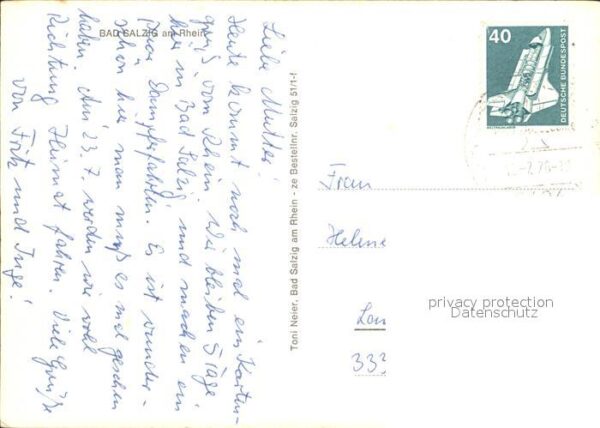 BAD SALZIG am Rhein
Liebe Mutter!
Heute kommt noch mal ein Karten-
gruß vom Rhein. Wir bleiben 5 Tage
hier in Bad Salzig und machen ein
paar Dampferfahrten. Es ist wunder-
schön hier man muß es mal gesehen
haben. Am 23.7. werden wir wohl
Richtung Heimat fahren. Viele Grüße
von Fritz und Inge!
Toni Neier, Bad Salzig am Rhein - ze Bestellnr. Salzig 51/1-f
40
DEUTSCHE BUNDESPOST
WELTRAUMLABOR
Frau
Helene
privacy protection
Datenschutz